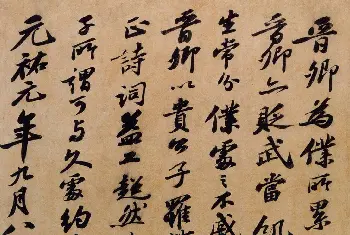 晉卿為僕所累
晉卿亦貶武當
生常分僕處之不戚
晉卿以貴公子罹
正詩詞益工超然
子所謂可与久處約
元祐元年九月八